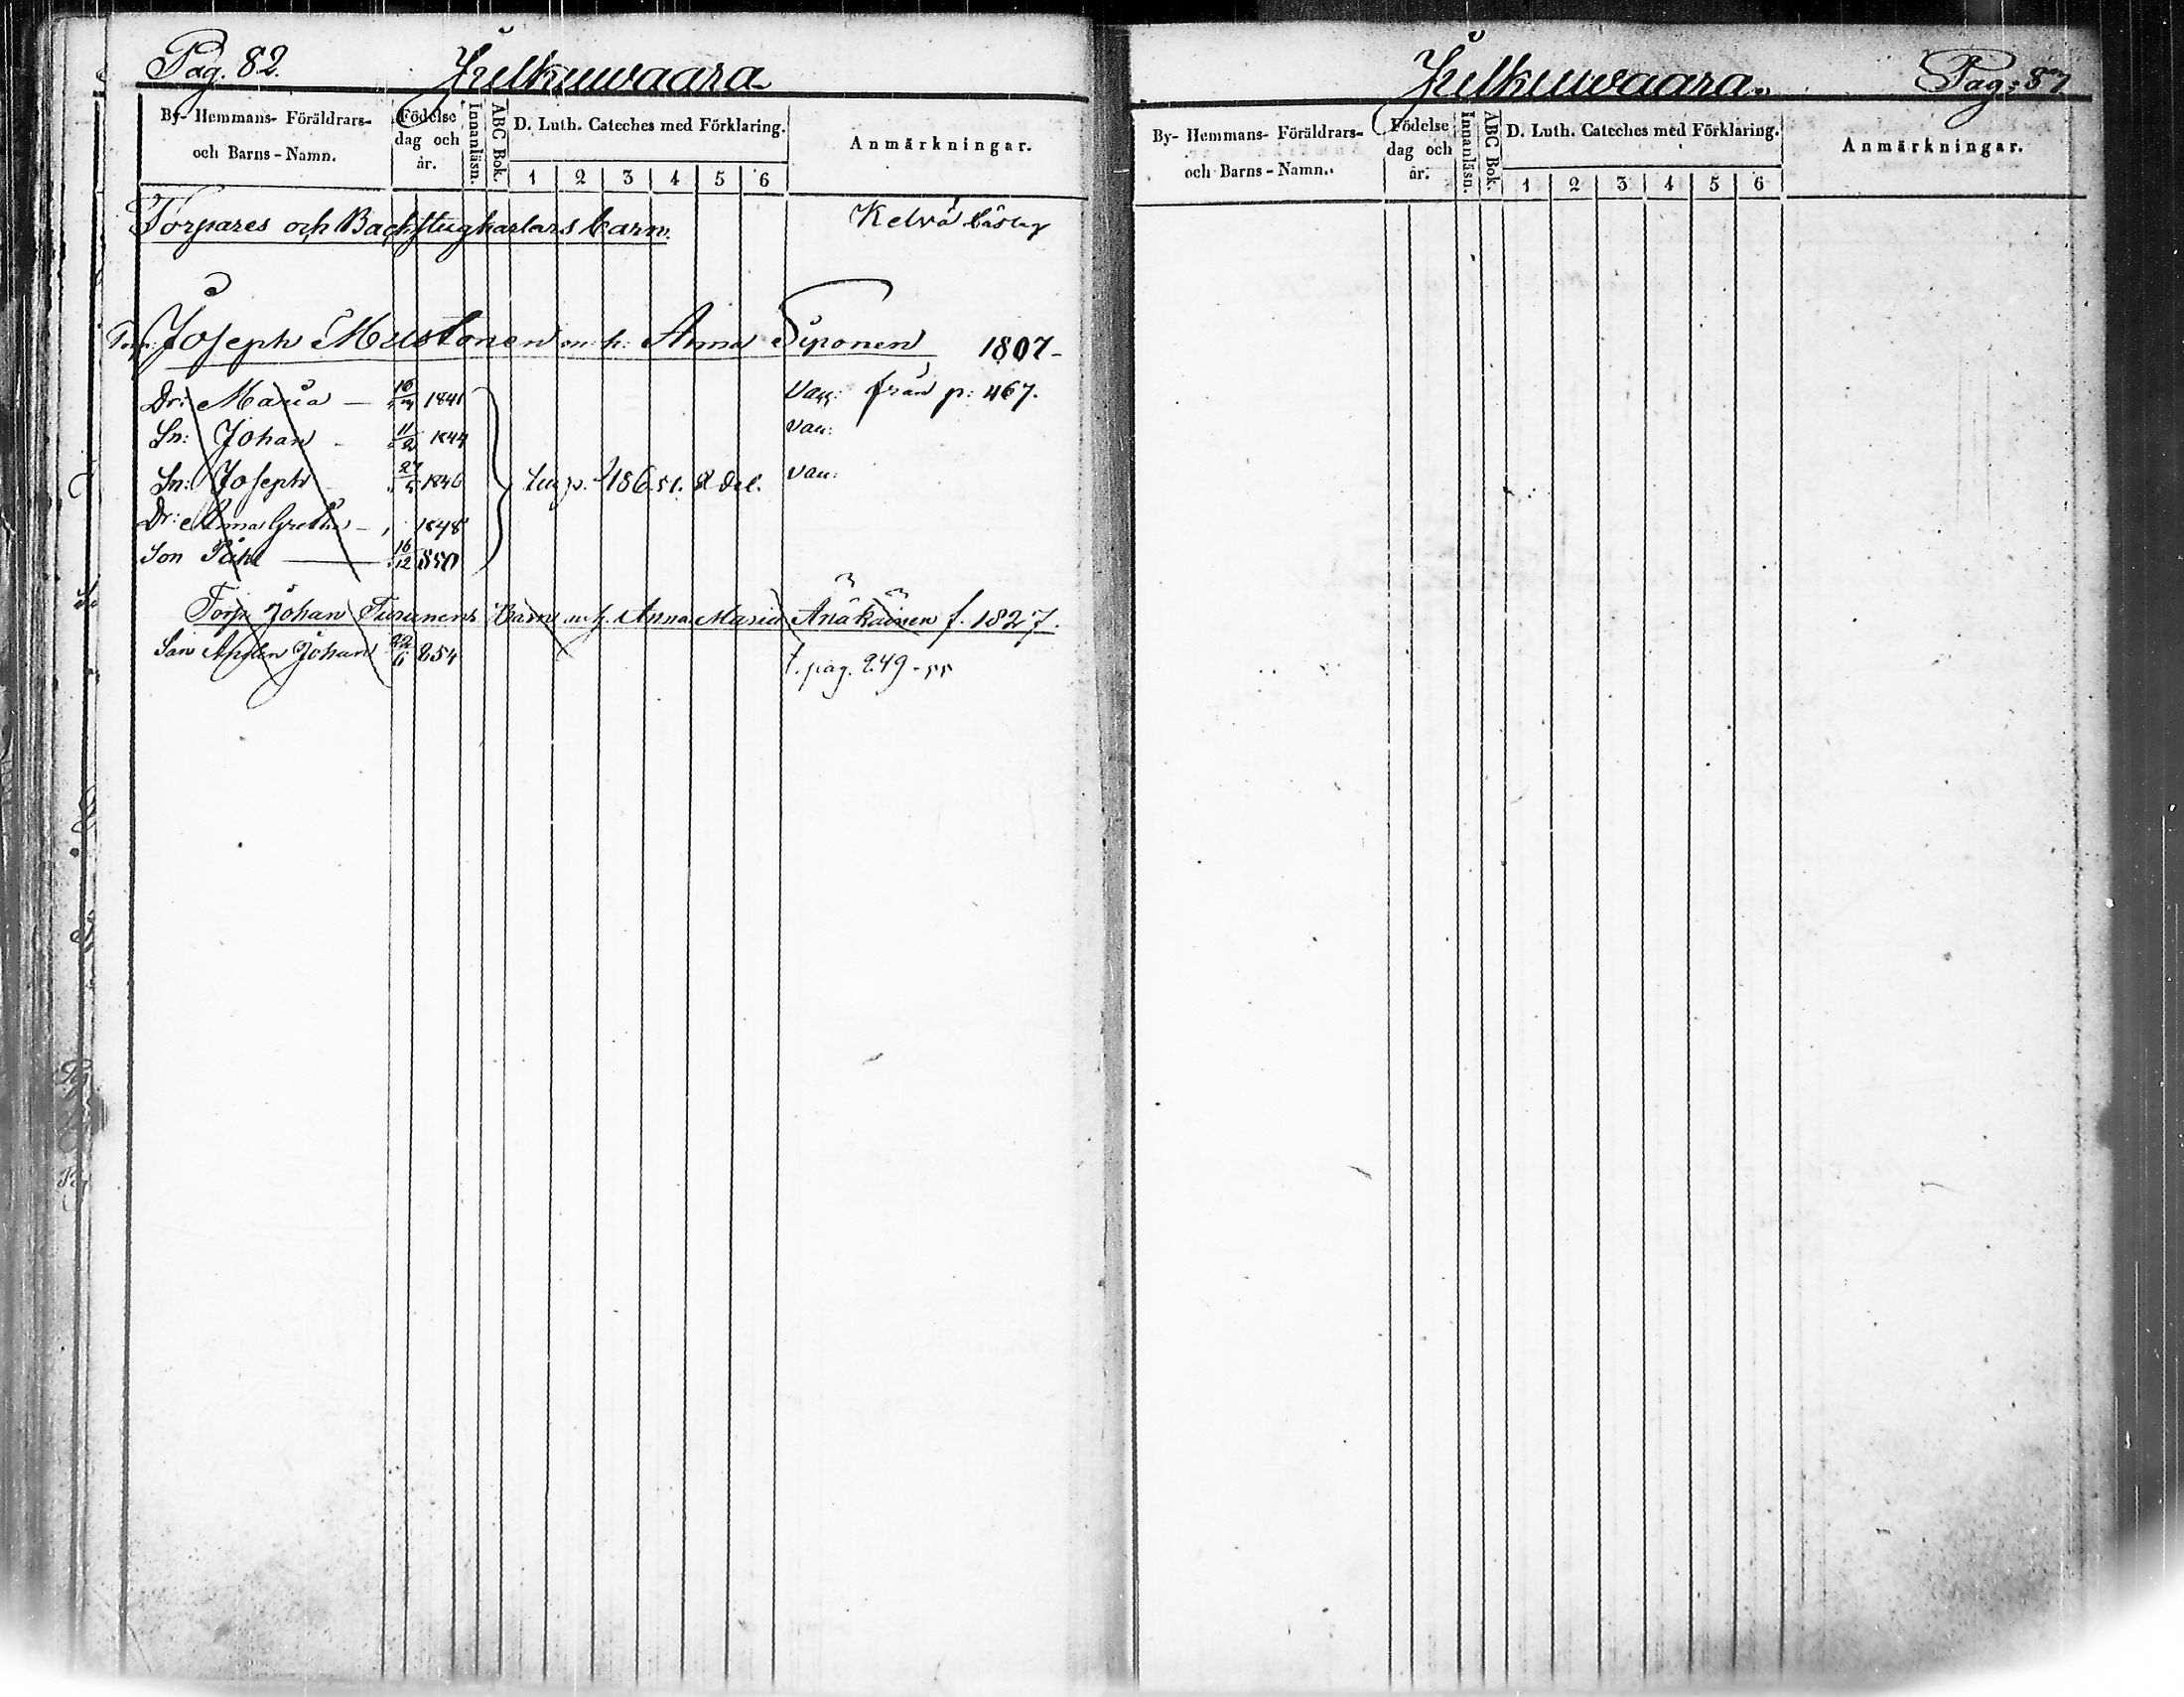 Pag. 82. Julkuwaara
By- Hemmans- Föräldrars- och Barns-Namn. Födelse dag och år. Innanläsn. ABC Bok. D. Luth. Cateches med Förklaring. 1 2 3 4 5 6 Anmärkningar.
Torpares och Backstugkarlars barn. Kelvå
Torp: Joseph Mustonen m. h. Anna Siponen 1807-
Dr: Maria 1841 Vac: från p: 467.
Sn: Johan 11/2 1844 vac:
Sn: Joseph 1846 p. 186. 51. 2 del. vac:
Dr: Anna Gretha 1848
Son Påhl 16/12 850
Torp: Johan Turunens Barn m. h. Anna Maria f. 1827.
Son Johan 854 t. pag. 249-55
Julkuwaara. Pag: 87
By- Hemmans- Föräldrars- och Barns-Namn. Födelse dag och år. Innanläsn. ABC Bok. D. Luth. Cateches med Förklaring. 1 2 3 4 5 6 Anmärkningar.